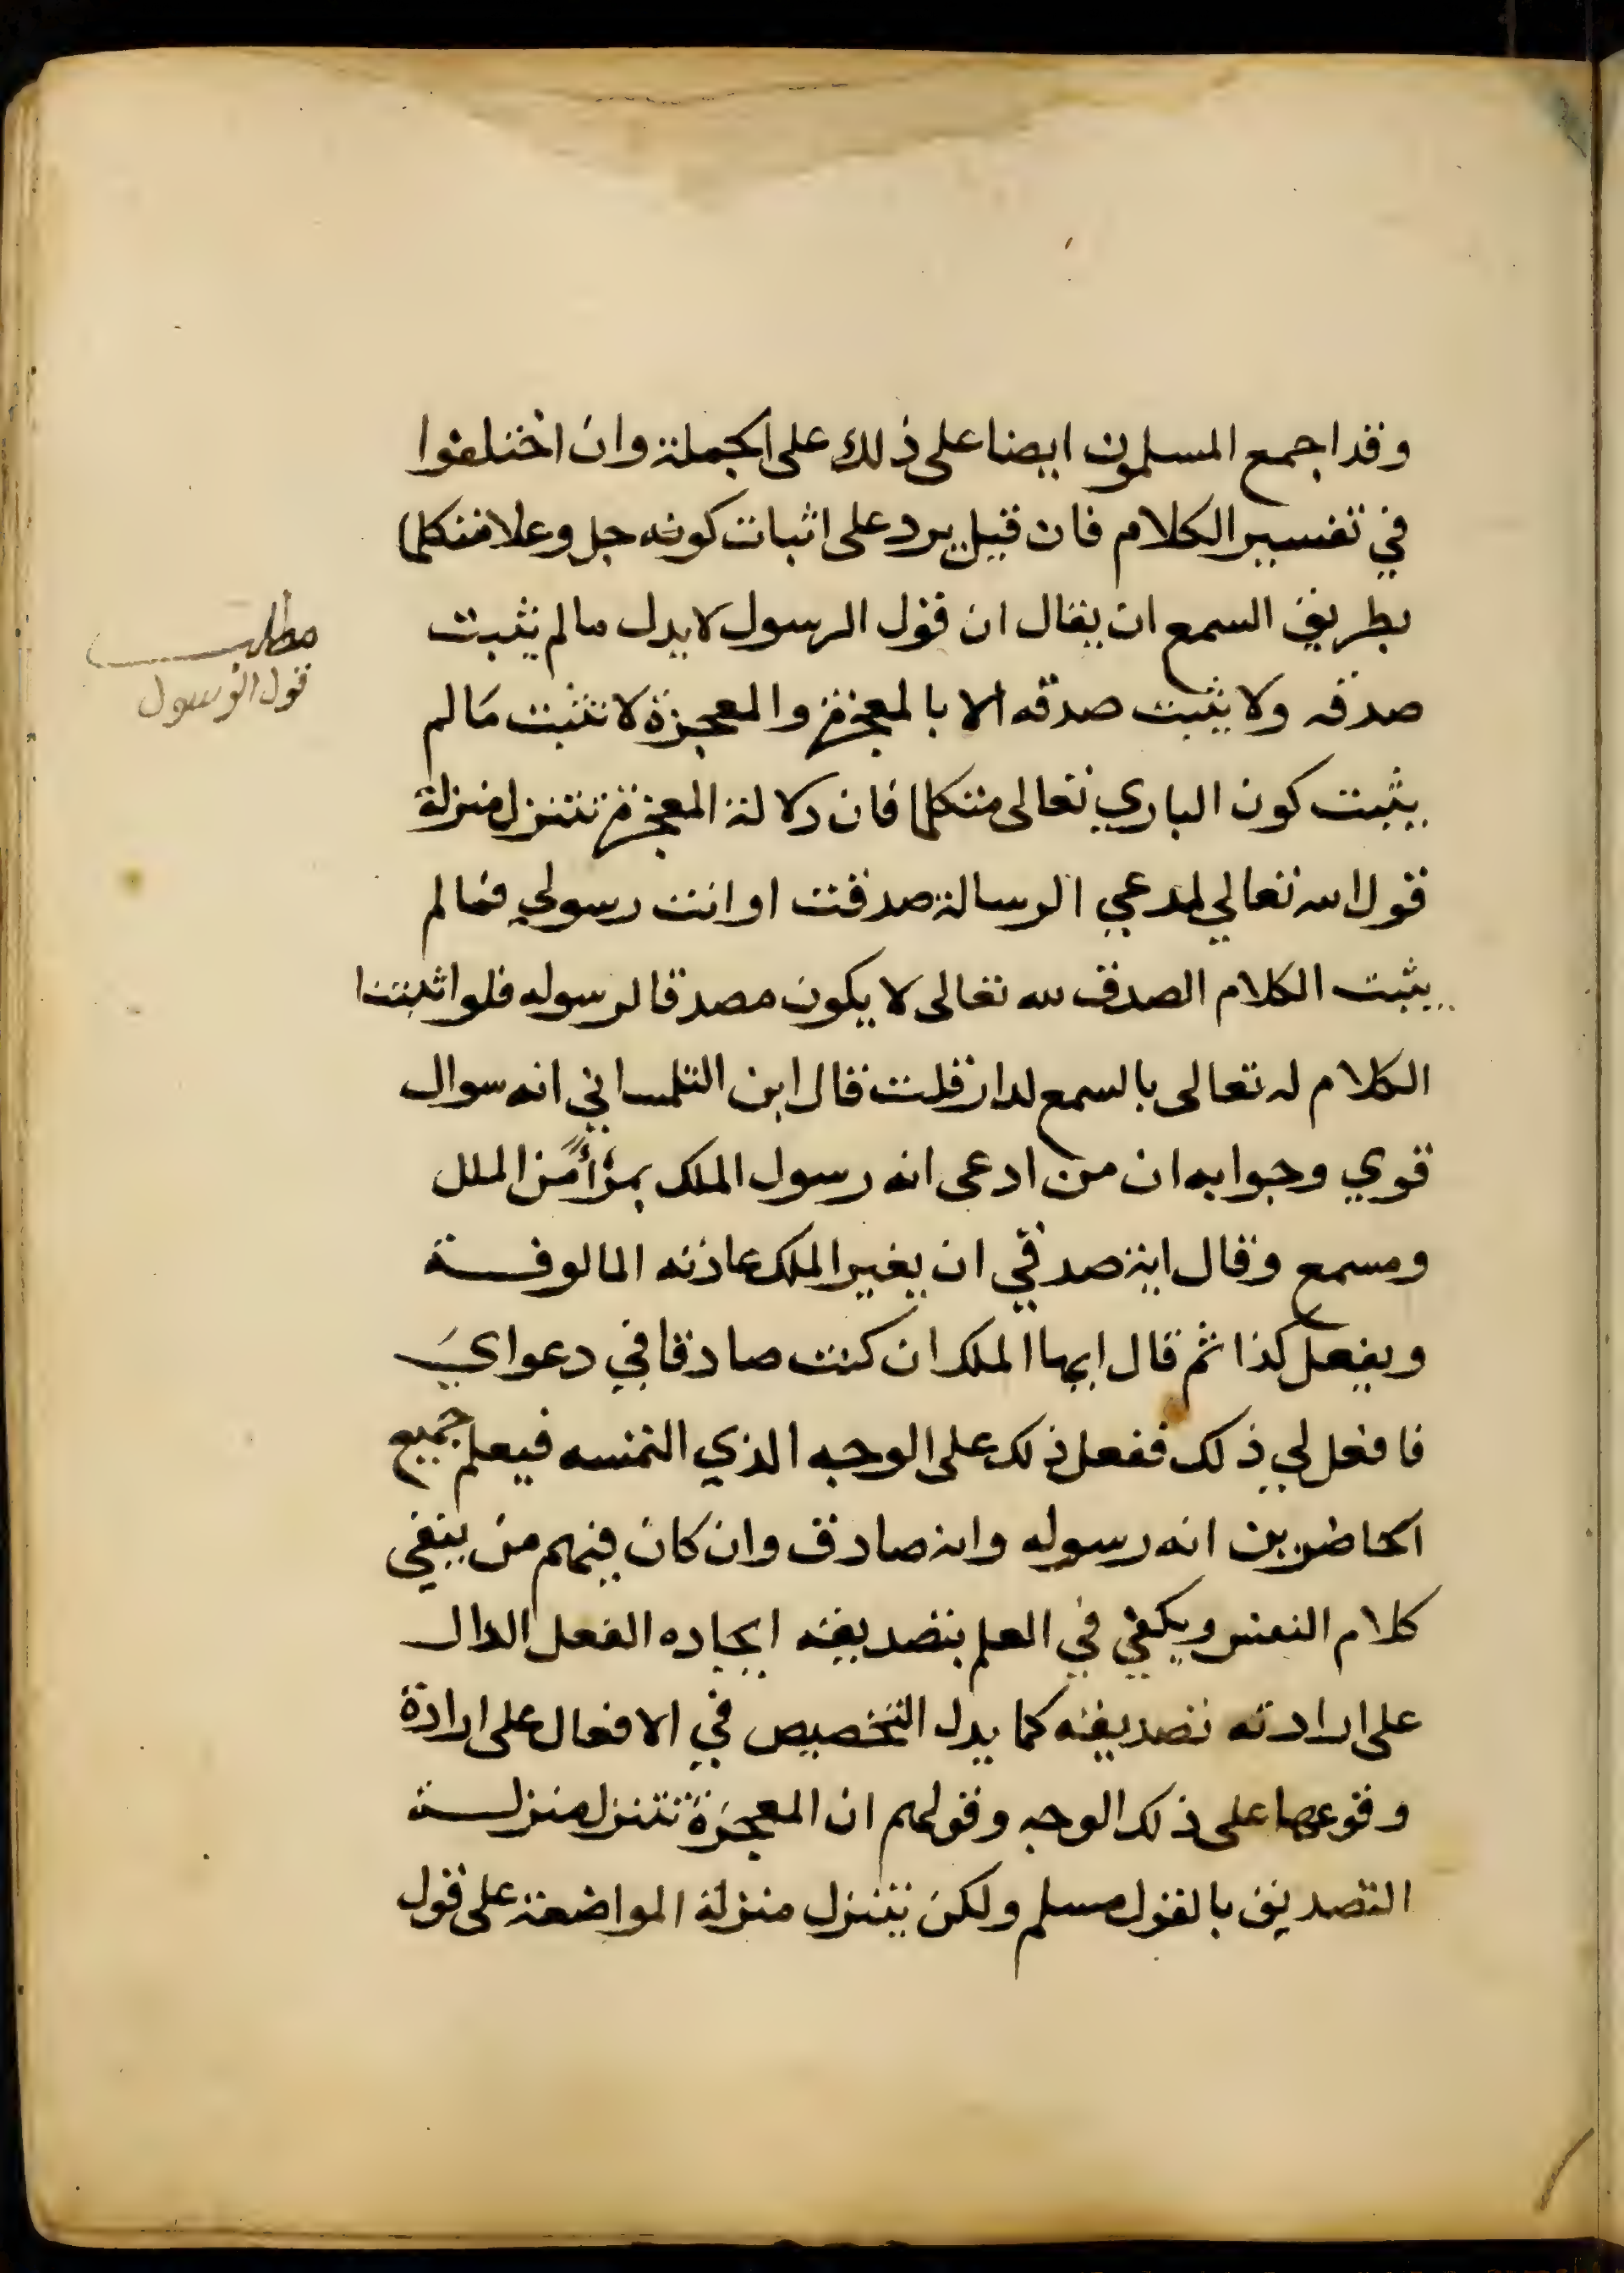 وقد اجمع المسلمون ايضا على ذلك على الجملة وان اختلفوا
في تفسير الكلام فان قيل يرد على اثبات كونه جل وعلا متكلما
بطريق السمع ان يقال ان قول الرسول لا يدل ما لم يثبت
مطلب
قول الرسول
صدقه ولا يثبت صدقه الا بالمعجزة والمعجزة لا تثبت مالم
يثبت كون الباري تعالى متكلما فان دلالة المعجزة تتنزل منزلة
قول الله تعالي لمدعي الرسالة صدقت او انت رسولي فما لم
يثبت الكلام الصدق لله تعالى لا يكون مصدقا لرسوله فلو اثبتنا
الكلام له تعالى بالسمع لدار قلت قال ابن التلمساني انه سوال
قوي وجوابه ان من ادعى انه رسول الملك بمرأ من الملل
ومسمع وقال اية صدقي ان يغير الملك عادته المالوفة
ويفعل كذا ثم قال ايها الملك ان كنت صادقا في دعواي
فافعل لي ذلك ففعل ذلك على الوجه الذي التمسه فيعلم جميع
الحاضرين انه رسوله وانه صادق وان كان فيهم من ينفي
كلام النفس ويكفي في العلم بتصديقه ايجاده الفعل الدال
على ارادته تصديقه كما يدل التخصيص في الافعال على ارادة
وقوعها على ذلك الوجه وقولهم ان المعجزة تتنزل منزلة
التصديق بالقول مسلم ولكن يتنزل منزلة المواضعة على قول